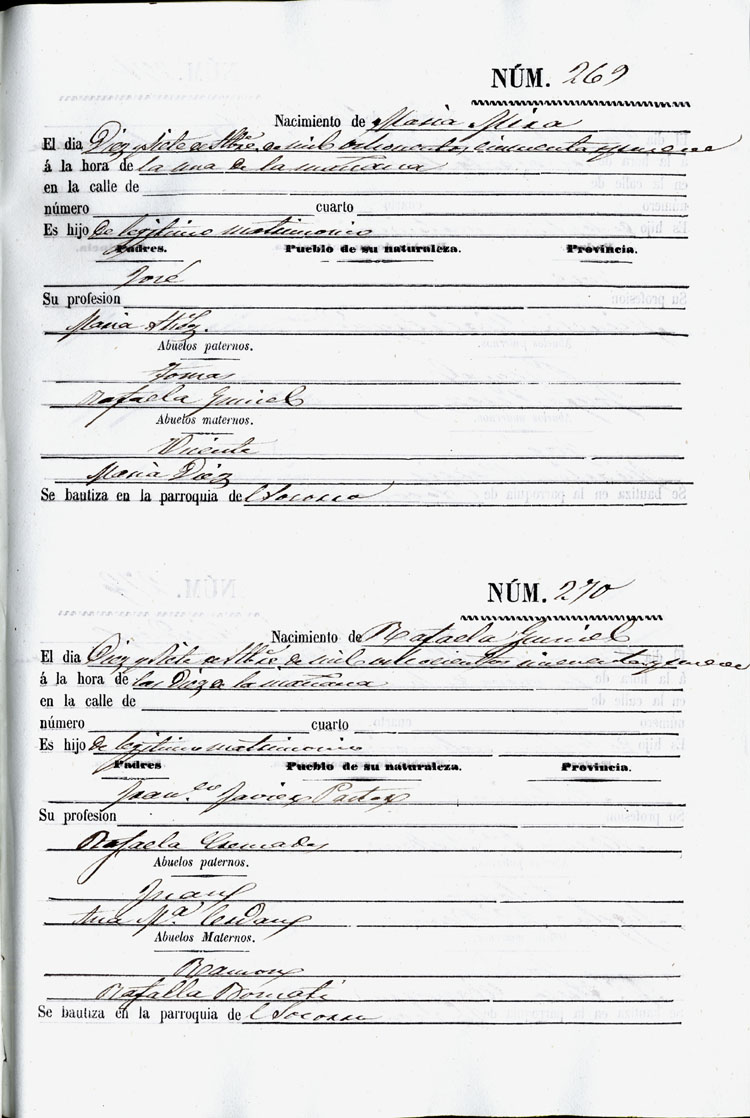 NÚM. 269
Nacimiento de Maria Mira
El dia Diez y siete de Stbre. de mil ochocientos cincuenta y nueve
á la hora de la una de la mañana
en la calle de
número cuarto
Es hijo de legitimo matrimonio
Padres. Pueblo de su naturaleza. Provincia.
José
Su profesion
Maria
Abuelos paternos.
Tomas
Rafaela Gumiel
Abuelos maternos.
Vicente
Maria Diez
Se bautiza en la parroquia de l Socorro
NÚM. 270
Nacimiento de Rafaela Gumiel
El dia Diez y siete de Stbre. de mil ochocientos cincuenta y nueve
á la hora de las Diez de la mañana
en la calle de
número cuarto
Es hijo de legitimo matrimonio
Padres Pueblo de su naturaleza. Provincia.
Fran.co Javier Pastor
Su profesion
Rafaela Cremades
Abuelos paternos.
Juan
Ana M.a Cerdan
Abuelos Maternos.
Ramon
Rafaela
Se bautiza en la parroquia de l Socorro